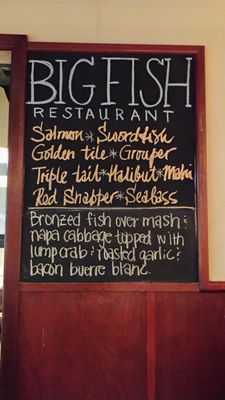 BIG FISH
RESTAURANT
Salmon * Swordfish
Golden tile * Grouper
Triple tail * Halibut * Mahi
Red Snapper * Seabass
Bronzed fish over mash &
napa cabbage topped with
lump crab & roasted garlic &
bacon buerre blanc.